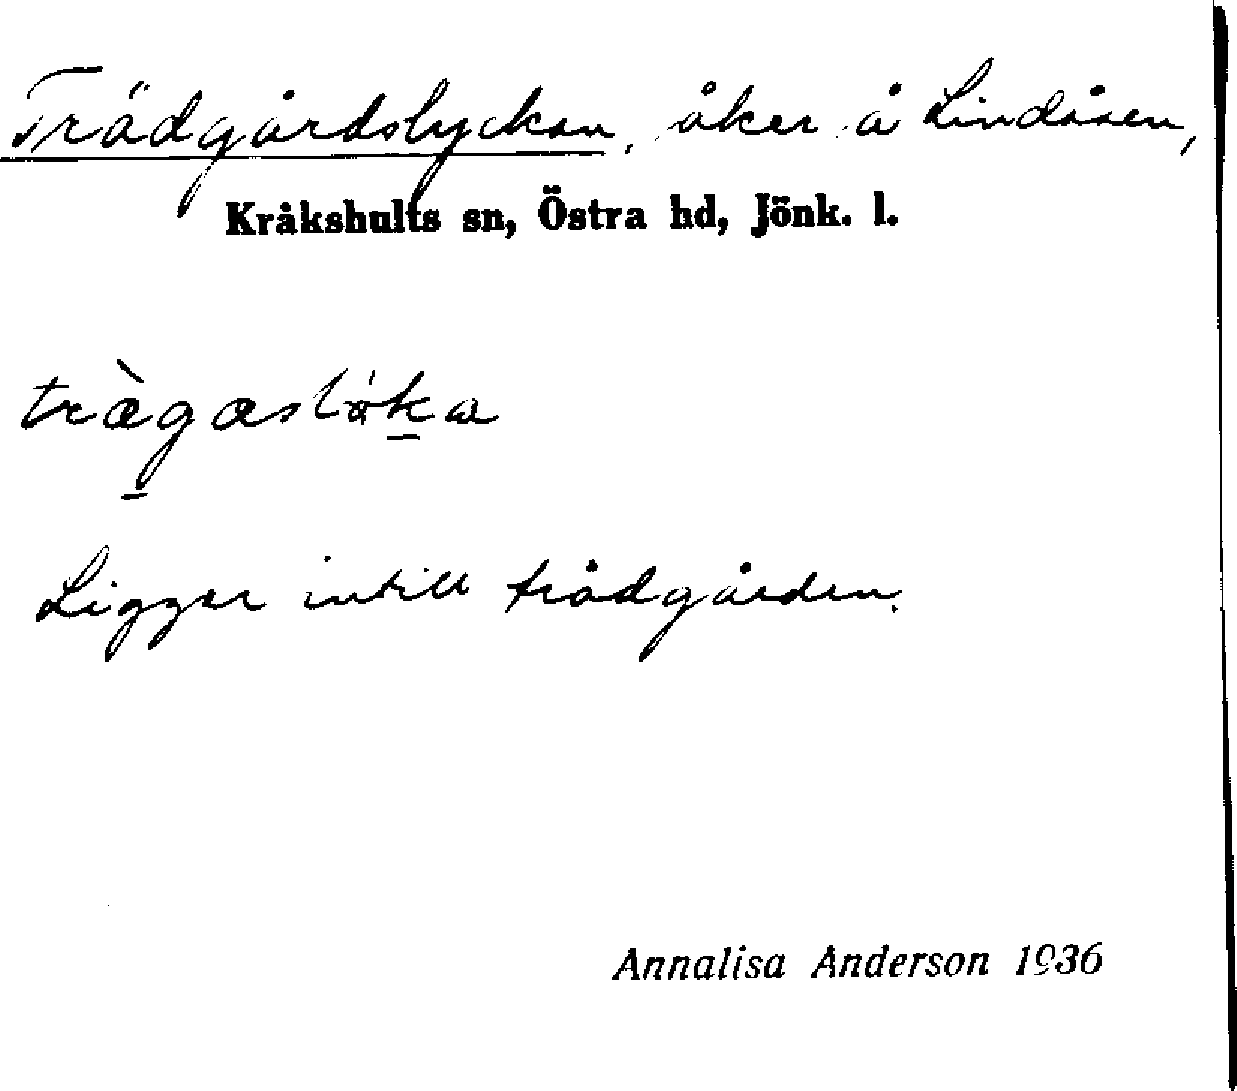 Trädgårdslyckan, åker å Lindåsen,
Kråkshults sn, Östra hd, Jönk. l.
Ligger intill trädgården.
Annalisa Anderson 1936